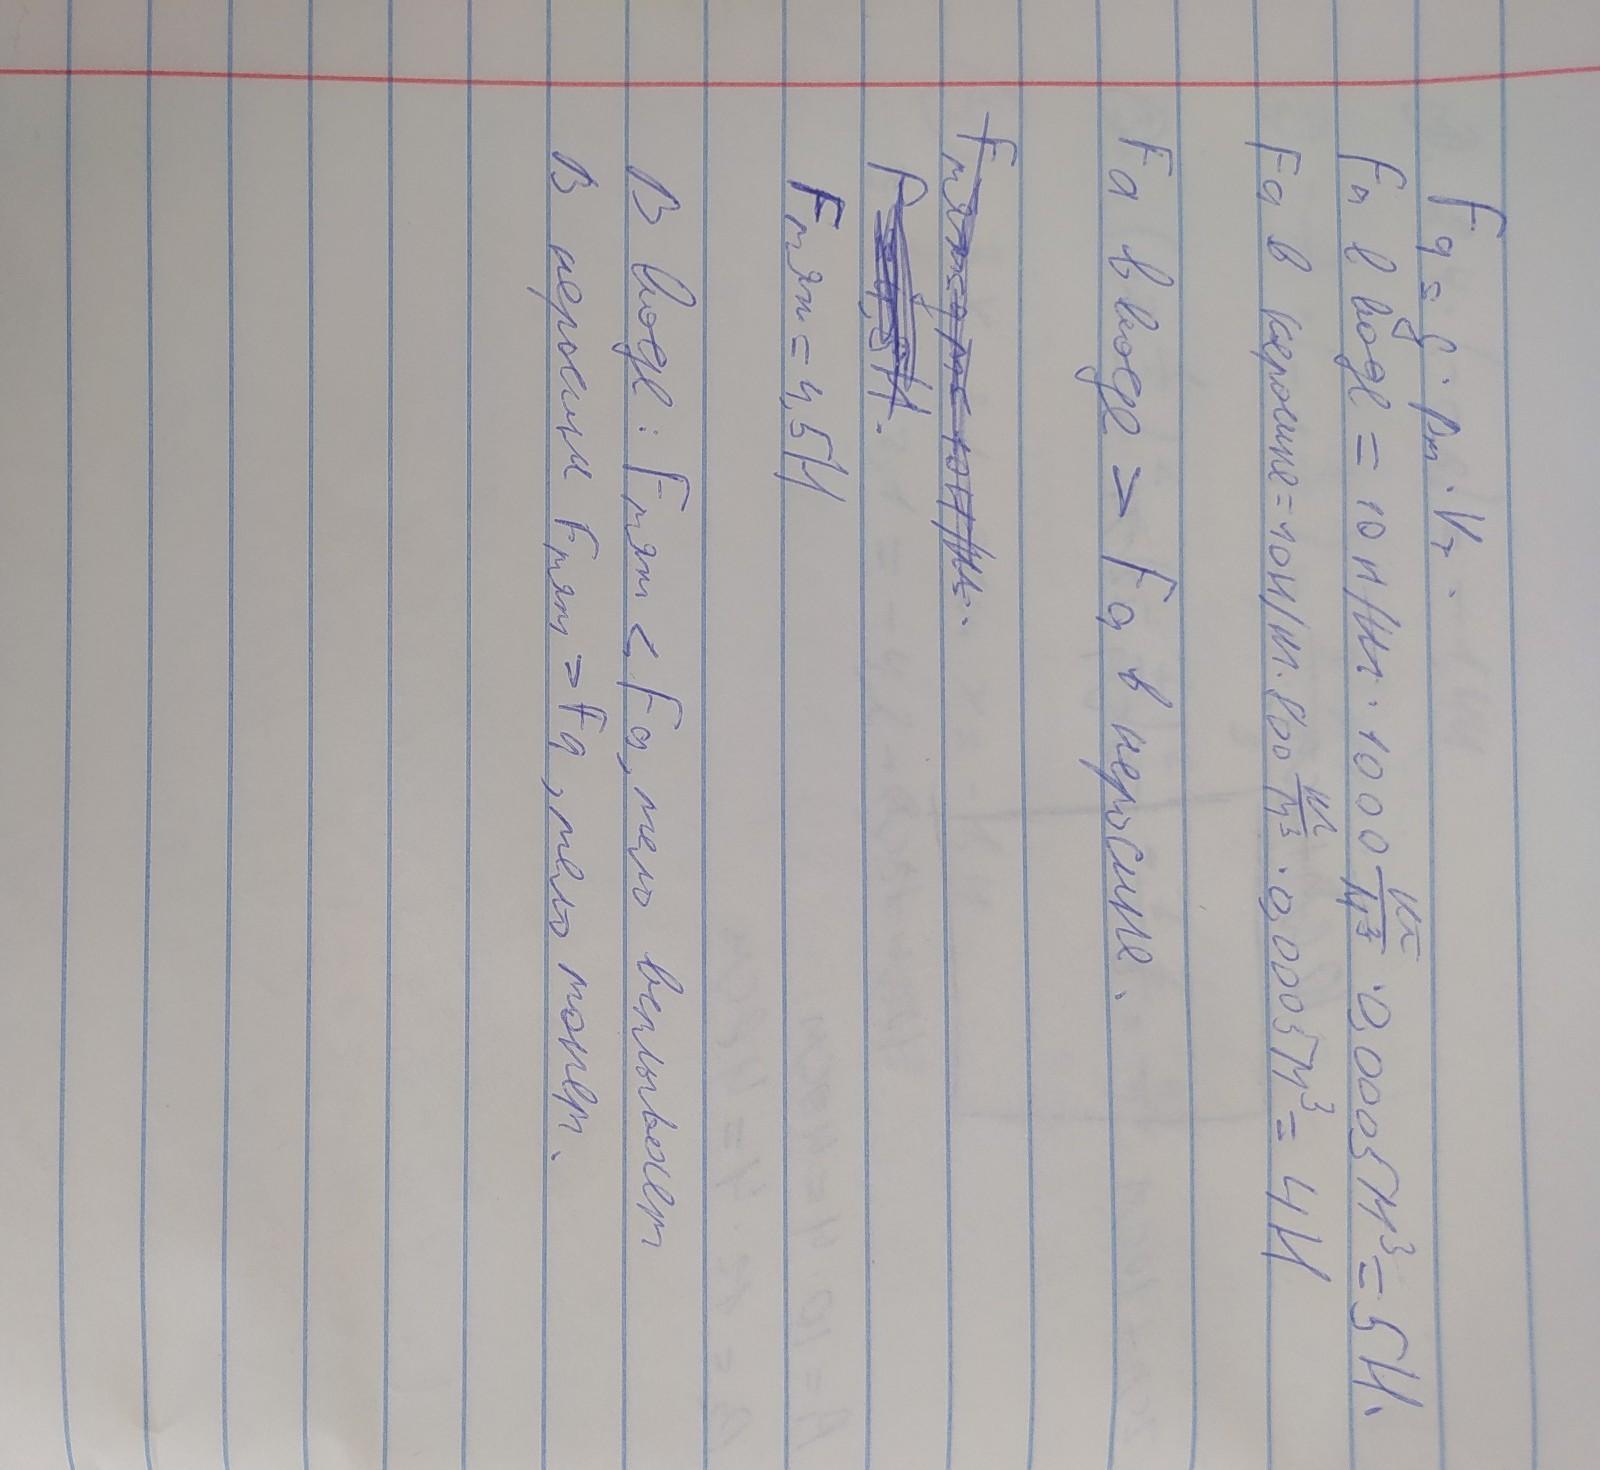 Fa = g · ρт · Vт.
Fa в воде = 10 н/кг · 1000 кг/м³ · 0,0005 м³ = 5Н.
Fa в керосине = 10Н/кг · 800 кг/м³ · 0,0005 м³ = 4Н
Fa в воде > Fa в керосине.
Fтяж = 4,5Н
В воде: Fтяж < Fa, тело всплывает
В керосин Fтяж > Fa, тело тонет.